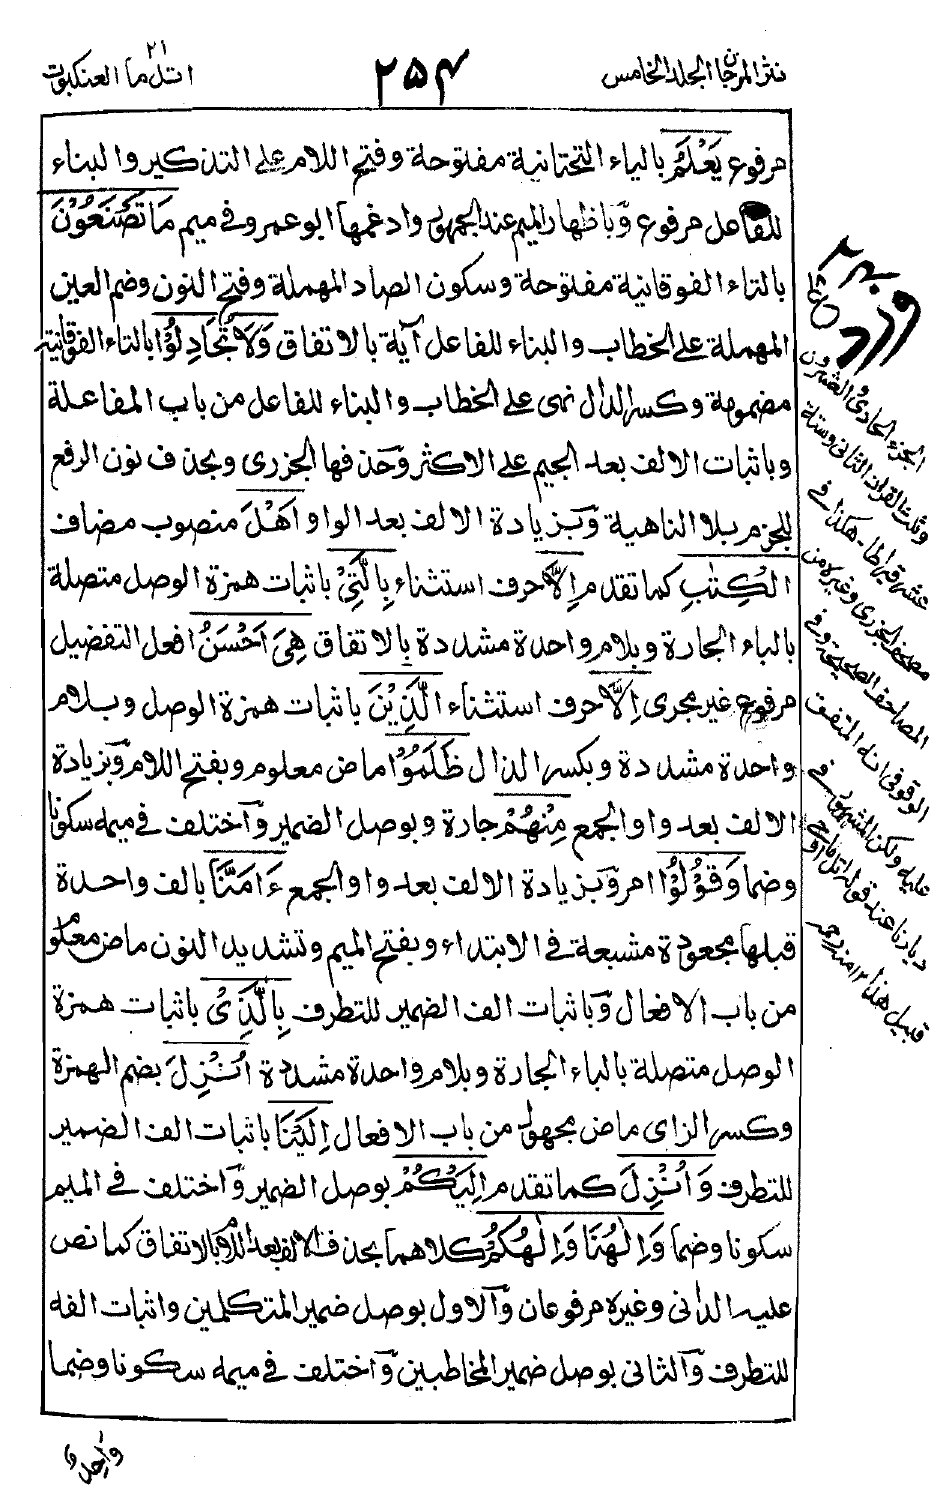 نثر المرجان الجلد الخامس
٢٥٤
اتل ما العنكبوت
٢١
مرفوع يَعْلَمُ بالياء التحتانية مفتوحة وفتح اللام على التذكير والبناء
للفاعل مرفوع وباظهار الميم عند الجمهور وادغمها ابو عمرو في ميم مَا تَصْنَعُوْنَ
بالتاء الفوقانية مفتوحة وسكون الصاد المهملة وفتح النون وضم العين
المهملة على الخطاب والبناء للفاعل آية بالاتفاق وَلَا تُجَادِلُوْا بالتاء الفوقانية
مضمومة وكسر الدال نهى على الخطاب والبناء للفاعل من باب المفاعلة
وباثبات الالف بعد الجيم على الاكثر وحذفها الجزرى وبحذف نون الرفع
للجزم بلا الناهية وبزيادة الالف بعد الواو اَهْلَ منصوب مضاف
الْكِتٰبِ كما تقدم اِلَّا حرف استثناء بِالَّتِيْ باثبات همزة الوصل متصلة
بالباء الجارة وبلام واحدة مشددة بالاتفاق هِيَ اَحْسَنُ افعل التفضيل
مرفوع غير مجرى اِلَّا حرف استثناء الَّذِيْنَ باثبات همزة الوصل وبلام
واحدة مشددة وبكسر الذال ظَلَمُوْا ماض معلوم وبفتح اللام وبزيادة
الالف بعد واو الجمع مِنْهُمْ جارة وبوصل الضمير واختلف في ميمه سكونا
وضما وَقُوْلُوْا امر وبزيادة الالف بعد واو الجمع ءَامَنَّا بالف واحدة
قبلها مجعودة مشبعة في الابتداء وبفتح الميم وتشديد النون ماض معلوم
من باب الافعال وباثبات الف الضمير للتطرف بِالَّذِيْ باثبات همزة
الوصل متصلة بالباء الجارة وبلام واحدة مشددة اُنْزِلَ بضم الهمزة
وكسر الزاى ماض مجهول من باب الافعال اِلَيْنَا باثبات الف الضمير
للتطرف وَاُنْزِلَ كما تقدم اِلَيْكُمْ بوصل الضمير واختلف في الميم
سكونا وضما وَاِلٰهُنَا وَاِلٰهُكُمْ كلاهما بحذف الالف بعد اللام بالاتفاق كما نص
عليه الدانى وغيره مرفوعان والاول بوصل ضمير المتكلمين واثبات الفه
للتطرف والثانى بوصل ضمير المخاطبين واختلف في ميمه سكونا وضما
الجزء الحادى والعشرون
وثلث القران الثانى وستة
عشر قيراطا - هكذا في
مصحف الجزرى وغيره من
المصاحف الصحيحة وفي
الوقوف انه المتفق
عليه ولكن المشهور في
ديارنا عند قوله اتل ما اوحى
قبيل هذا ١٢ منه رحمه
وَاحِدٌ